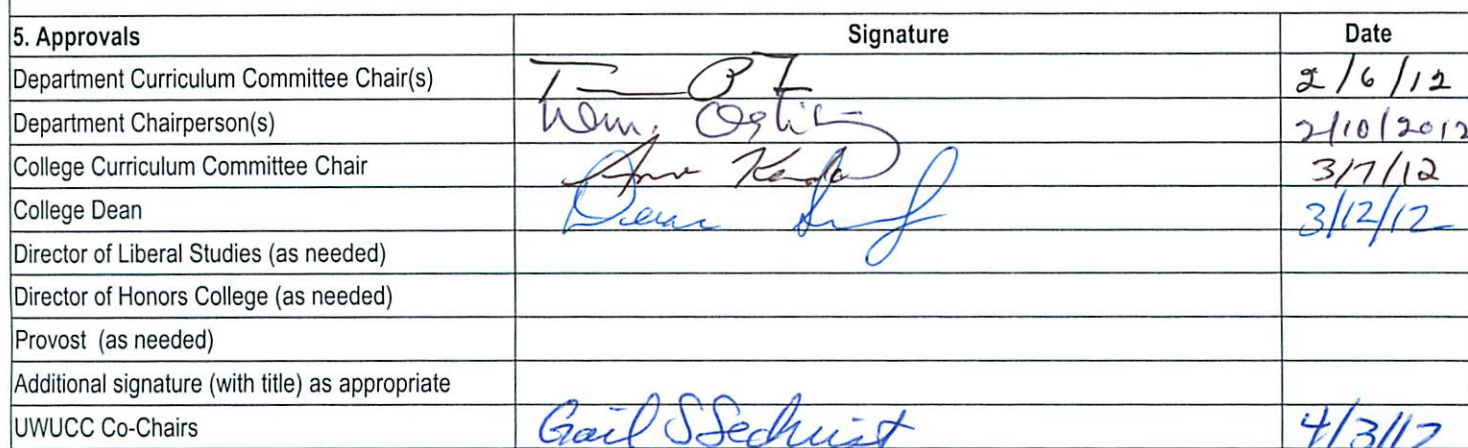 5. Approvals Signature Date
Department Curriculum Committee Chair(s) 2/6/12
Department Chairperson(s) Wm. 2/10/2012
College Curriculum Committee Chair 3/7/12
College Dean 3/12/12
Director of Liberal Studies (as needed)
Director of Honors College (as needed)
Provost (as needed)
Additional signature (with title) as appropriate
UWUCC Co-Chairs Gail S Sechrist 4/3/12